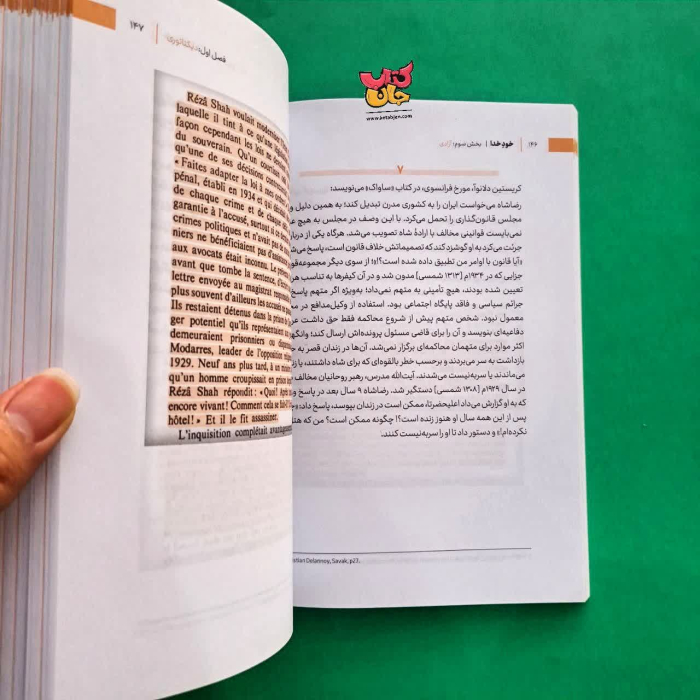 کتاب
جان
www.ketabjan.com
۱۴۶
خودِ خدا | بخش سوم: آزادی
۷
کریستین دلانوآ، مورخ فرانسوی، در کتاب «ساواک» می‌نویسد:
رضاشاه می‌خواست ایران را به کشوری مدرن تبدیل کند؛ به همین دلیل
مجلس قانون‌گذاری را تحمل می‌کرد. با این وصف در مجلس به هیچ
نمی‌بایست قوانینی مخالف با ارادهٔ شاه تصویب می‌شد. هرگاه یکی از
جرئت می‌کرد به او گوشزد کند که تصمیماتش خلاف قانون است، پاسخ
«آیا قانون با اوامر من تطبیق داده شده است؟!» از سوی دیگر
جزایی که در ۱۹۳۴م [۱۳۱۳ شمسی] مدون شد و در آن کیفرها به تناسب
تعیین شده بودند، هیچ تأمینی به متهم نمی‌داد؛ به‌ویژه اگر متهم
جرائم سیاسی و فاقد پایگاه اجتماعی بود. استفاده از وکیل‌مدافع در
معمول نبود. شخص متهم پیش از شروع محاکمه فقط حق داشت
دفاعیه‌ای بنویسد و آن را برای قاضی مسئول پرونده‌اش ارسال کند؛
اکثر موارد برای متهمان محاکمه‌ای برگزار نمی‌شد. آن‌ها در زندان قصر به
بازداشت به سر می‌بردند و برحسب خطر بالقوه‌ای که برای شاه داشتند، یا
می‌ماندند یا سربه‌نیست می‌شدند. آیت‌الله مدرس، رهبر روحانیان مخالف
در سال ۱۹۲۹م [۱۳۰۸ شمسی] دستگیر شد. رضاشاه ۹ سال بعد در پاسخ
که به او گزارش می‌داد اعلیحضرتا، ممکن است در زندان بپوسد، پاسخ داد:
پس از این همه سال او هنوز زنده است؟! چگونه ممکن است؟ من که
نکرده‌ام!» و دستور داد تا او را سربه‌نیست کنند.
Delannoy, Savak, p27.
۱۴۷
فصل اول: دیکتاتوری
Rézâ Shah voulait moderniser
laquelle il tint à ce qu'une
façon cependant les lois ne
du souverain. Qu'un courtisan
qu'une de ses décisions
« Faites adapter la loi à mes
pénal, établi en 1934 et qui
de chaque crime et de chaque
garantie à l'accusé, surtout si
crimes politiques et n'avait pas
niers ne bénéficiaient pas
aux avocats était inconnu. Le
avant que tombe la sentence,
lettre envoyée au magistrat
plus souvent d'ailleurs les accusés
Ils restaient détenus dans la prison
ger potentiel qu'ils représentaient
demeuraient prisonniers ou
Modarres, leader de l'opposition
1929. Neuf ans plus tard, à un
qu'un homme croupissait en prison
Rézâ Shah répondit : « Quoi!
encore vivant! Comment cela se
hôtel! » Et il le fit assassiner.
L'inquisition complétait